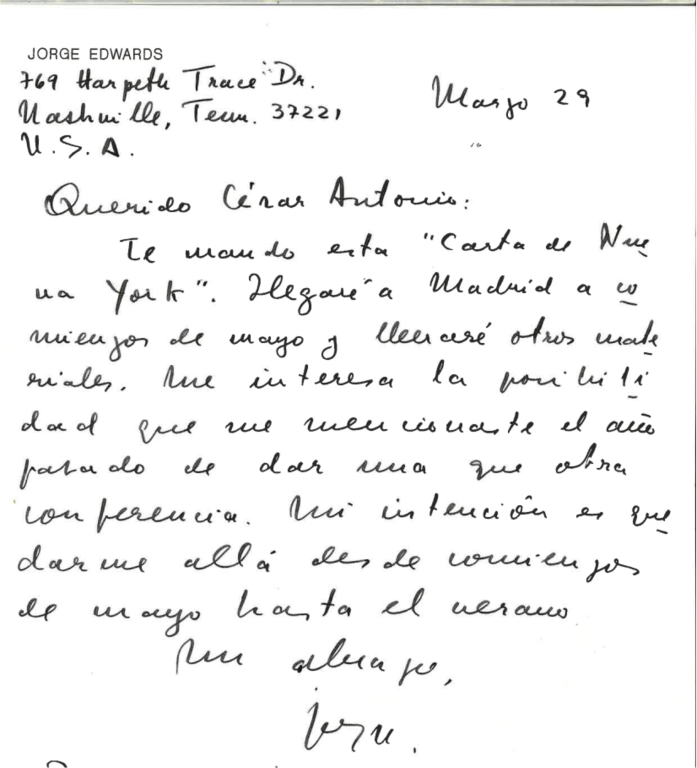 JORGE EDWARDS
769 Harpeth Trace Dr.
Nashville, Tenn. 37221
U.S.A.
Marzo 29
Querido César Antonio:
Te mando esta "Carta de Nue
va York". Llegaré a Madrid a co
mienzos de mayo y llevaré otros mate
riales. Me interesa la posibili
dad que me mencionaste el año
pasado de dar una que otra
conferencia. Mi intención es que
darme allá desde comienzos
de mayo hasta el verano
Un abrazo,
Jorge.